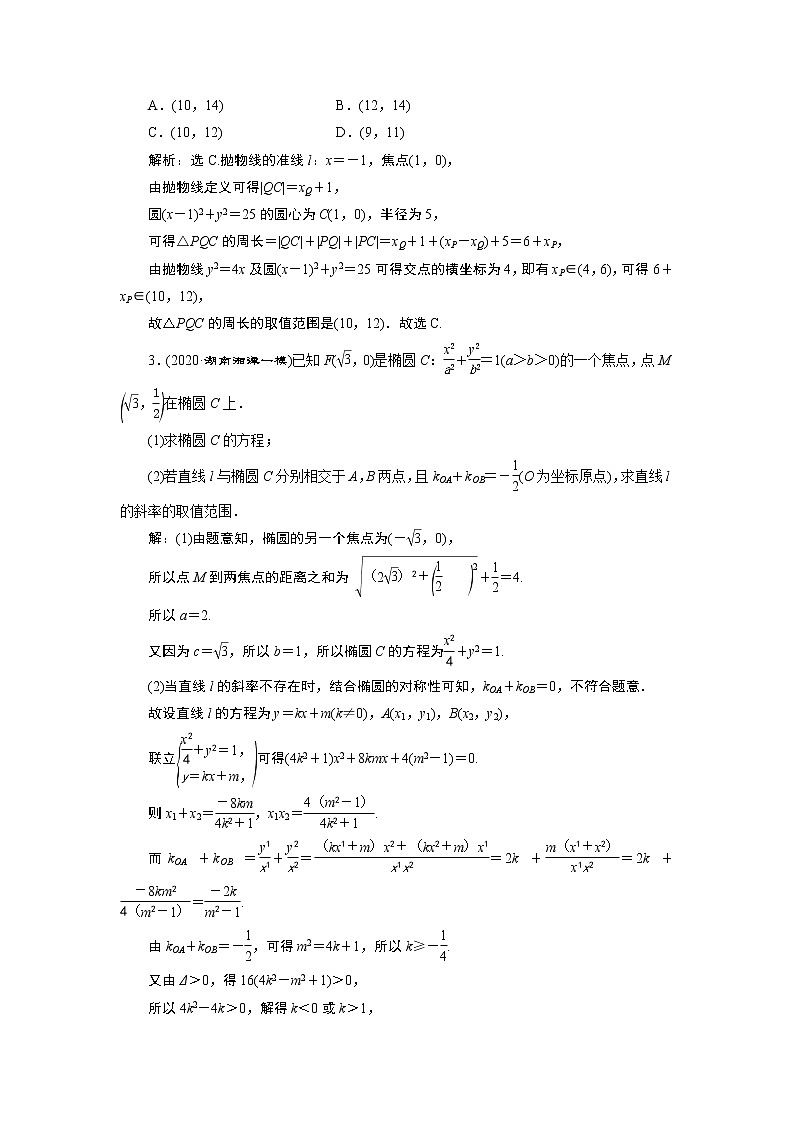 A．(10，14)　　　　B．(12，14)
C．(10，12)　　　　D．(9，11)
解析：选 C.抛物线的准线 l：x＝－1，焦点(1，0)，
由抛物线定义可得|QC|＝xQ＋1，
圆(x－1)²＋y²＝25 的圆心为 C(1，0)，半径为 5，
可得△PQC 的周长＝|QC|＋|PQ|＋|PC|＝xQ＋1＋(xP－xQ)＋5＝6＋xP，
由抛物线 y²＝4x 及圆(x－1)²＋y²＝25 可得交点的横坐标为 4，即有 xP∈(4，6)，可得 6＋
xP∈(10，12)，
故△PQC 的周长的取值范围是(10，12)．故选 C.
3．(2020·湖南湘潭一模)已知 F(√3，0)是椭圆 C：x²/a²＋y²/b²＝1(a＞b＞0)的一个焦点，点 M
(√3，1/2)在椭圆 C 上．
(1)求椭圆 C 的方程；
(2)若直线 l 与椭圆 C 分别相交于 A，B 两点，且 kOA＋kOB＝－1/2(O 为坐标原点)，求直线 l
的斜率的取值范围．
解：(1)由题意知，椭圆的另一个焦点为(－√3，0)，
所以点 M 到两焦点的距离之和为 √(（2√3）²＋(1/2)²)＋1/2＝4.
所以 a＝2.
又因为 c＝√3，所以 b＝1，所以椭圆 C 的方程为x²/4＋y²＝1.
(2)当直线 l 的斜率不存在时，结合椭圆的对称性可知，kOA＋kOB＝0，不符合题意．
故设直线 l 的方程为 y＝kx＋m(k≠0)，A(x1，y1)，B(x2，y2)，
联立(x²/4＋y²＝1，y＝kx＋m，)可得(4k²＋1)x²＋8kmx＋4(m²－1)＝0.
则 x1＋x2＝－8km/(4k²＋1)，x1x2＝4（m²－1）/(4k²＋1).
而 kOA ＋kOB ＝y1/x1＋y2/x2＝(（kx1＋m）x2＋（kx2＋m）x1)/(x1x2)＝2k ＋m（x1＋x2）/(x1x2)＝2k ＋
－8km²/(4（m²－1）)＝－2k/(m²－1).
由 kOA＋kOB＝－1/2，可得 m²＝4k＋1，所以 k≥－1/4.
又由 Δ＞0，得 16(4k²－m²＋1)＞0，
所以 4k²－4k＞0，解得 k＜0 或 k＞1，